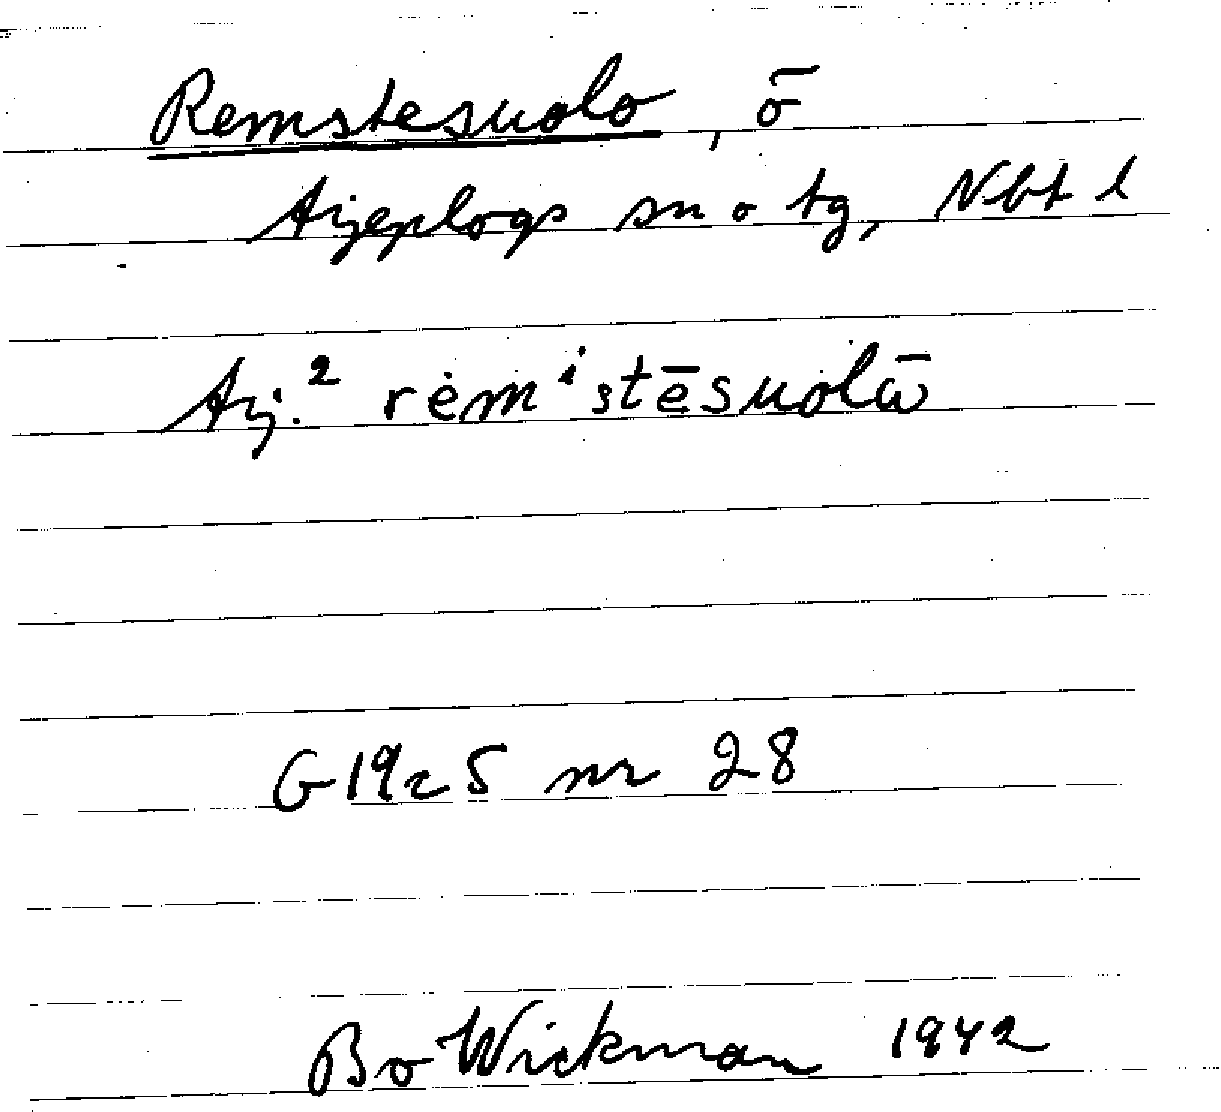 Remstesuolo, ö
Arjeplogs sn o tg, Nbt l
Arj.² rėmⁱstēsuȯlā̇
G 1925 nr 28
Bo Wickman 1942